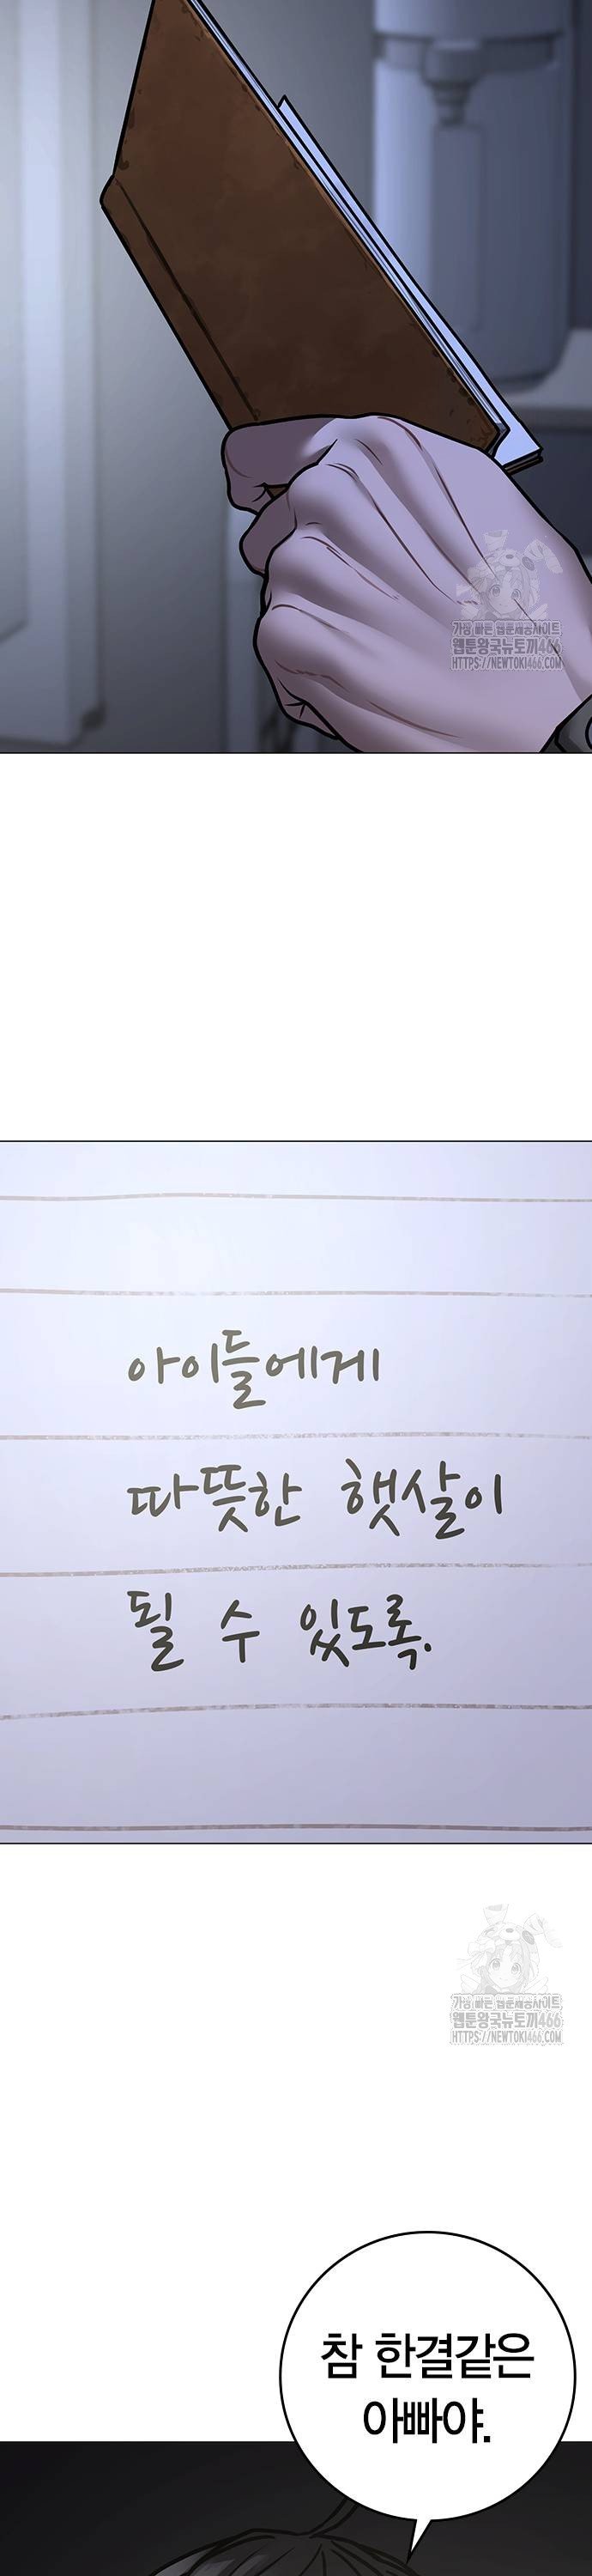 가장 빠른 웹툰제공사이트
웹툰왕국뉴토끼466
HTTPS://NEWTOKI466.COM
아이들에게
따뜻한 햇살이
될 수 있도록.
가장 빠른 웹툰제공사이트
웹툰왕국뉴토끼466
HTTPS://NEWTOKI466.COM
참 한결같은
아빠야.